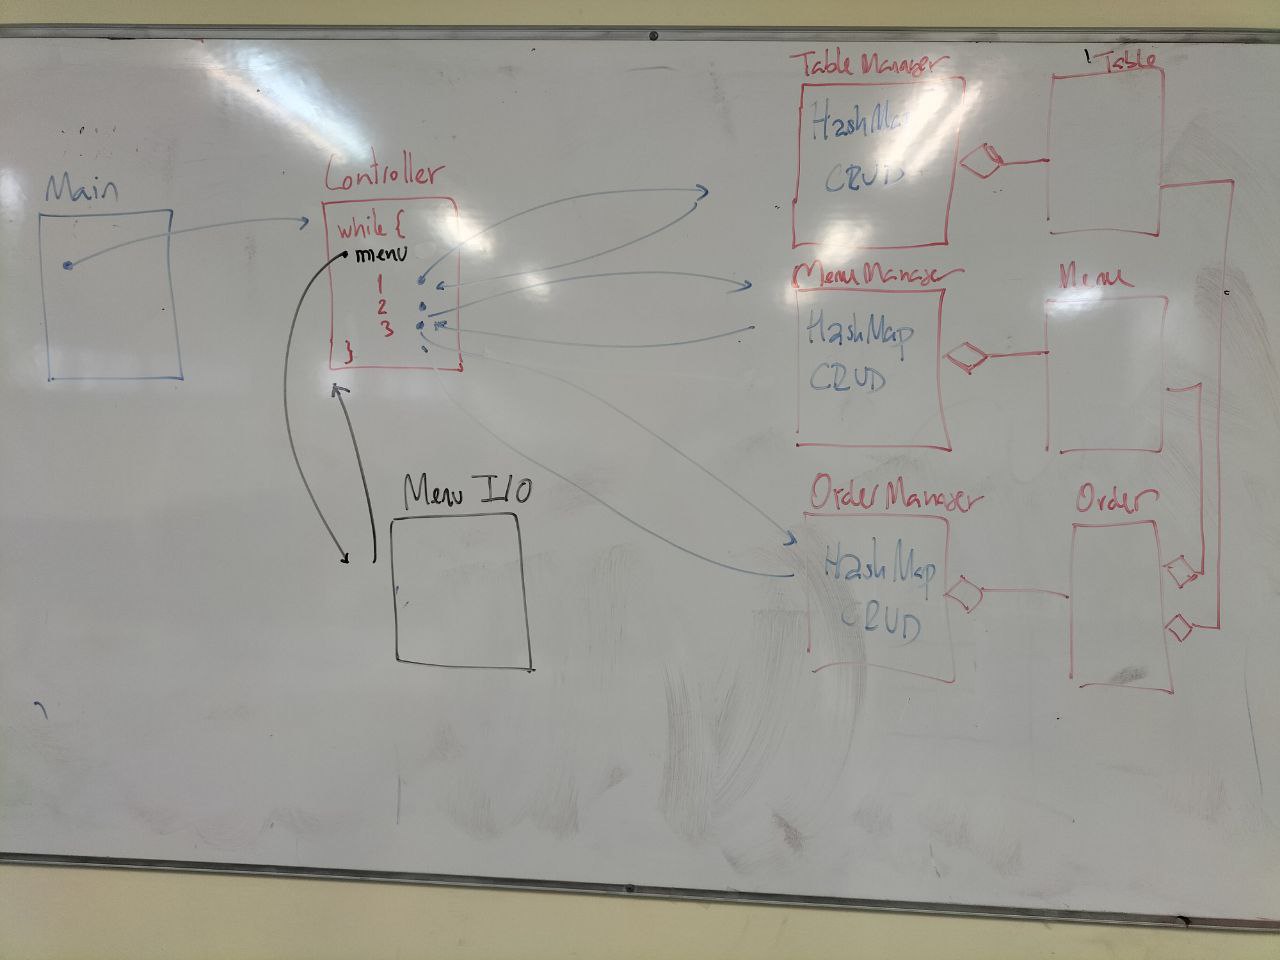 Main
Controller
while {
menu
1
2
3
}
Menu I/O
Table Manager
HashMap
CRUD
Table
Menu Manager
HashMap
CRUD
Menu
Order Manager
HashMap
CRUD
Order